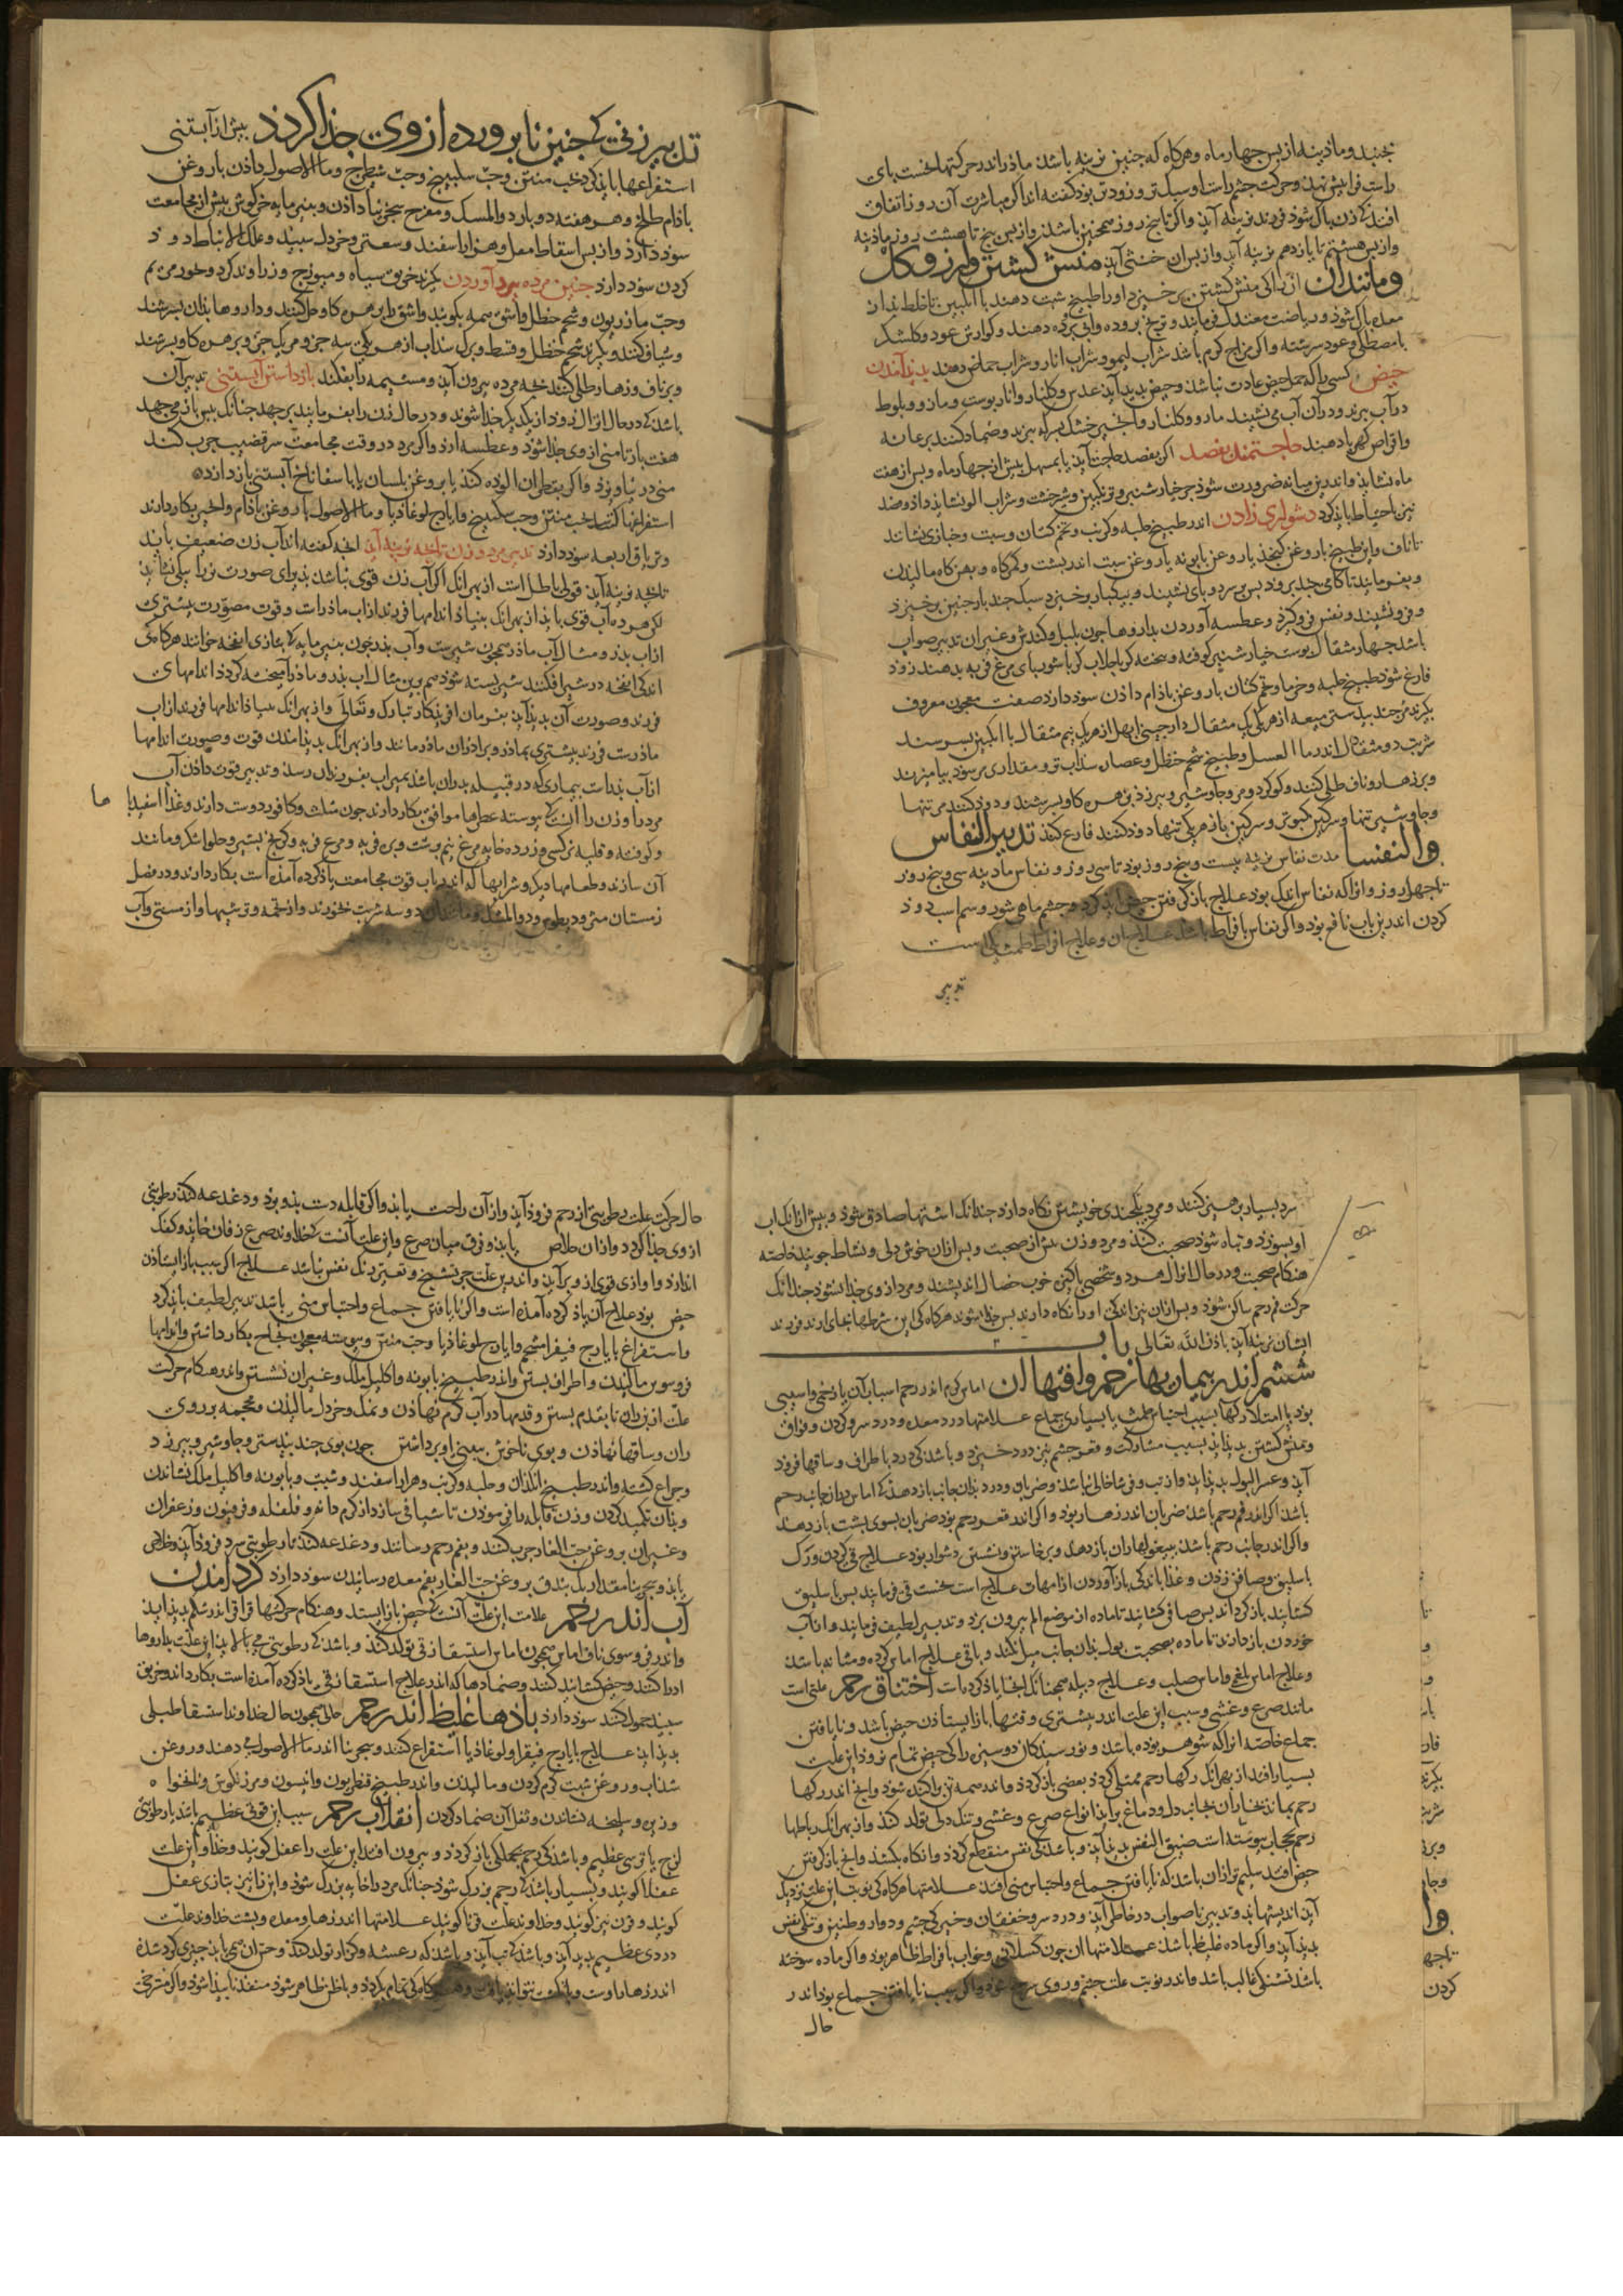 بجنبد و مادینه از پس چهار ماه و هرگاه که جنین نرینه باشد مادر اندر حرکتها نخست پای
راست فرا پیش نهد و حرکت چشم راست او سبک‌تر و زودتر بود گفته اند اگر مباشرت آن روز اتفاق
افتد که زن پاک شود فرزند نرینه آید و اگر تا پنج روز همچنین باشد و از پس پنج تا هشت روز مادینه
و از پس هشتم تا یازدهم نرینه آید و از پس آن خنثی آید منش گشتن و آرزوی گل
و مانند آن آنرا که منش گشتن برخیزد او را طبیخ شبت دهند با انگبین تا خلط بد از
معده پاک شود و ریاضت معتدل فرمایند و ترنج پرورده و آبی پرورده دهند و گوارش عود و گلشکر
با مصطکی و عود سرشته و اگر مزاج گرم باشد شراب لیمو و شراب انار و شراب حماض دهند پدید آمدن
حیض کسی را که حمل حیض عادت نباشد و حیض پدید آید عدس و گلنار و انار پوست و مازو و بلوط
در آب بپزند و در آن آب می نشیند مازو و گلنار و انجیر خشک بسرکه بپزند و ضماد کنند بر عانه
و اقراص کهربا دهند حاجتمندی بفصد اگر بفصد حاجت آید یا بمسهل پیش از چهار ماه و پس از هفت
ماه نشاید و اندرین میانه ضرورت شود جز خیار شنبر و ترنگبین و شیرخشت و شراب الو نشاید داد و فصد
نیز باحتیاط باید کرد دشواری زادن اندر طبیخ حلبه و کرنب و تخم کتان و شبت و خبازی نشانند
تا ناف و این طبیخ با روغن کنجد یا روغن بابونه یا روغن شبت اندر پشت و تهیگاه و بهن گاه مالیدن
و بفرمایند تا گامی چند برود پس بر سر دو پای نشیند و بیکبار برخیزد سبک چند بار چنین برخیزد
و فرو نشیند و نفس فرو گیرد و عطسه آوردن بداروها چون پلپل و کندش و غیر آن تدبیر صواب
باشد چهار مثقال پوست خیار شنبر کوفته و بیخته گر با جلاب گر با شوربای مرغ فربه بدهند زود
فارغ شود طبیخ حلبه و خرما و تخم کتان با روغن بادام دادن سود دارد صفت معجون معروف
بگیرند مر جند بیدستر میعه از هر یکی یک مثقال دارچینی ابهل از هر یک نیم مثقال با انگبین بسرشند
شربت دو مثقال اندر ماء العسل و طبیخ شحم حنظل و عصاره سداب تر و مقداری مر سود بیامیزند
و بر زهار و ناف طلی کنند و گوگرد و مر و جاوشیر و بیرزد بزهره گاو بسرشند و دود کنند مر تنها
و جاوشیر تنها و سرگین کبوتر و سرگین باز هر یکی تنها دود کنند فارغ کند تدبیر النفاس
والنفسا مدت نفاس نرینه بیست و پنج روز بود تا سی روز و نفاس مادینه سی و پنج روز
تا چهل روز و انرا که نفاس اندک بود علاج بازگرفتن حیض باید کرد و چشم ماهی شور و سم اسب دود
کردن اندرین باب نافع بود و اگر نفاس بافراط باشد علاج آن و علاج افراط طمث یکی است
تدبیر
تدبیر زنی که جنین نا پرورده از وی جدا گردد پیش از آبستنی
استفراغها باید کرد بحب منتن و حب سکبینج و حب شیطرج و ماء الاصول دادن با روغن
بادام طلخ و هر هفته دو بار دواء المسک و مفرح سجزینا دادن و پنیر مایه خرگوش پیش از مجامعت
سود دارد و از پس اسقاط مقل و هزار اسفند و سعتر و خردل سپید و علک الانباط دود
کردن سود دارد جنین مرده بیرون آوردن بگیرند خربق سیاه و میویزج و زراوند گرد و بخور مریم
و حب مازریون و شحم حنظل و اشق همه بکوبند و اشق را بزهره گاو حل کنند و داروها بدان بسرشند
و شیاف کنند و بگیرند شحم حنظل و قسط و برگ سداب از هر یکی سه جزو مر یک جزو بزهره گاو بسرشند
و بر ناف و زهار طلی کنند بچه مرده بیرون آید و مشیمه را بفکند بازداشتن آبستنی تدبیر آن
باشد که در حال انزال زود از یکدیگر جدا شوند و در حال زن را بفرمایند بر جهد چنانک پس باز می جهد
هفت بار تا منی از وی جدا شود و عطسه ارد و اگر مرد در وقت مجامعت سر قضیب چرب کند
منی در نیاویزد و اگر بقطران الوده کند یا بروغن بلسان یا با سفاناخ آبستنی باز دارد
استفراغها کند بحب منتن و حب سکبینج و ایارج لوغاذیا و ماء الاصول با روغن بادام و انجیر بکار دارند
و تریاق اربعه سود دارد تدبیر مرد و زن تا بچه نرینه آید آنچه گفته اند آب زن ضعیف باید
تا بچه نرینه آید قولی باطل است از بهر آنک اگر آب زن قوی نباشد پذیرای صورت نرینگی نشاید
لکن هر دو آب قوی باید از بهر آنک بنیاد اندامها فرزند از آب مادر است و قوت مصورت بیشتری
از آب پدر و مثال آب مادر همچون شیر ست و آب پدر چون پنیر مایه که بتازی انفحه خوانند هرگاه که
اندکی انفحه در شیر افکنند شیر بسته شود هم برین مثال آب پدر و مادر آمیخته گردد اندامهای
فرزند و صورت آن پدید آید بفرمان آفریدگار تبارک و تعالی و از بهر آنک بنیاد اندامها فرزند از آب
مادرست فرزند بیشتری بمادر و برادران مادر مانند و از بهر آنک پدید آمدن قوت و صورت اندامها
از آب پدرست بیماری که در قبیله پدران باشد بمیراث بفرزندان رسد و تدبیر قوت دادن آب
مرد را و زن را آنست که پیوسته عطرها موافق بکار دارند چون مشک و کافور دوست دارند و غذا اسفیدبا ها
و کوفته و قلیه نرگسی و زرده خایه مرغ نیم برشت و بره فربه و مرغ فربه و کرنج بشیر و حلوا شکر و مانند
آن سازند و طعامها دیگر و شرابها که اندر باب قوت مجامعت یاد کرده آمده است بکار دارند و در فصل
زمستان مثرودیطوس و دواء المسک و مانند آن دو سه شربت بخورند و از تخمه و ترشیها و از مستی و آب
سرد بسیار پرهیز کنند و مرد یکچندی خویشتن نگاه دارد چندانک اشتها صادق شود و پیش از آنک آب
او بسوزد و تباه شود صحبت کند و مرد و زن پیش از صحبت و پس از آن خوش دلی و نشاط جویند خاصه
هنگام صحبت و در حال انزال هر دو شخصی پاکیزه خوب خصال اندیشند و مرد از وی جدا نشود چندانک
حرکت فم رحم ساکن شود و پس از آن نیز اندکی او را نگاه دارند پس جدا شوند هرگاه که این شرطها بجای ارند فرزند
ایشان نرینه آید باذن الله تعالی باب
ششم اندر بیماریها رحم و آفتها آن اماس گرم اندر رحم اسباب آن یا زخمی و اسیبی
بود یا امتلا رگها بسبب احتباس طمث یا بسیاری جماع علامتها درد معده و درد سر و گردن و فواق
و منش گشتن پدید آید بسبب مشارکت و قعر چشم نیز درد خیزد و باشد که درد باطراف و ساقها فرود
آید و عسر البول پدید آید و از تب و فی تاخالی نباشد و ضربان و درد بدان جانب باز دهد که اماس در آن جانب رحم
باشد اگر اندر فم رحم باشد ضربان اندر زهار بود و اگر اندر قعر رحم بود ضربان بسوی پشت باز دهد
و اگر اندر جانب رحم باشد ببیغولها ران باز دهد و برخاستن و نشستن دشوار بود علاج فی کردن و رگ
باسلیق و صافن زدن و غذا باندکی باز آوردن از امهات علاج است نخست قی فرمایند پس باسلیق
گشایند باز گرداند پس صافی گشایند تا ماده از موضع الم بیرون برد و تدبیر لطیف فرمایند و از آب
خوردن باز دارند تا ماده بصحبت بول بدان جانب میل نکند و باقی علاج اماس گرده و مثانه باشد
و علاج اماس بلغمی و اماس صلب و علاج دبیله همچنانک آنجا یاد کرده است اختناق رحم علتی است
مانند صرع و غشی و سبب این علت اندر بیشتری وقتها باز ایستادن حیض باشد و نا یافتن
جماع خاصه آنرا که شوهر بوده باشد و نو رسیدگان دوسیزه را که حیض تمام نرود این علت
بسیار افتد از بهر آنک رگها رحم ممتلی گردد بعضی باز گردد و اندر همه تن پراکنده شود و آنچ اندر رگها
رحم بماند بخار آن بجانب دل و دماغ براید انواع صرع و غشی و تنگ دلی تولد کند و از بهر آنک رباطها
رحم بحجاب پیوسته است ضیق النفس پدید آید و باشد که نفس منقطع گردد و انگاه بکشد و آنچ باز گرفتن
حیض افتد سلیم تر از آن باشد که نا یافتن جماع و احتباس منی افتد علامتها هرگاه که نوبت این علت نزدیک
آید اندیشها بد و تدبیر ناصواب در خاطر آید و درد سر و خفقان و خیرگی چشم و دوار و طنین و تنگی نفس
پدید آید و اگر ماده غلیظ باشد علامتها آن چون کسلانی و خواب بافراط ظاهر بود و اگر ماده سوخته
باشد تشنگی غالب باشد و اندر نوبت علت چشم و روی سرخ شود و اگر سبب نا یافتن جماع بود اندر
حال
حال حرکت علت رطوبتی از رحم فرود آید و از آن راحت یابد و اگر قابله دست بدو برد و دغدغه کند رطوبتی
از وی جدا گردد و از آن خلاص یابد و فرق میان صرع و این علت آنست که خداوند صرع زفان خاید و کفک
اندازد و اوازی قوی از وی برآید و اندرین علت جز تشنج و تغییر رنگ نفس نباشد علاج اگر سبب باز ایستادن
حیض بود علاج آن یاد کرده آمده است و اگر نا یافتن جماع و احتباس منی باشد تدبیر لطیف باز گرد
و استفراغ بایارج فیقرا شحم و ایارج لوغاذیا و حب منتن و پیوسته معجون نجاح بکار داشتن و اندامها
فروسوین مالیدن و اطراف بستن و اندر طبیخ بابونه و اکلیل الملک و غیر آن نشستن و اندر هنگام حرکت
علت از بن ران تا بقدم بستن و قدمها در آب گرم نهادن و نمک و خردل مالیدن و محجمه بر روی
ران و ساقها نهادن و بوی ناخوش ببینی او برداشتن چون بوی جند بیدستر و جاوشیر و بیرزد
و چراغ کشته و اندر طبیخ انگدان و حلبه و کرنب و هزار اسفند و شبت و بابونه و اکلیل الملک نشاندن
و بدان تکمید کردن و زن قابله را فرسودن تا شیافی سازد از کرم دانه و فلفل و فرفیون و زعفران
و غیر آن بروغن حب الغار چرب کنند و بفم رحم رسانند و دغدغه کند تا رطوبتی سرد فرود آید و خلاص
یابد و سجرینا مقدار یک بندق بروغن حب الغار بفم معده رسانیدن سود دارد گرد آمدن
آب اندر رحم علامت این علت آنست که حیض باز ایستد و هنگام حرکتها قراقر اندر شکم پدید آید
و اندر فروسوی ناف اماس همچون اماس استسقا زقی تولد کند و باشد که رطوبتی می پالاید این علت بداروها
ادرار کنند و حیض گشایند کنند و ضمادها که اندر علاج استسقا زقی یاد کرده آمده است بکار دارند و خربق
سپید حمول کنند سود دارد بادها غلیظ اندر رحم حالی همچون حال خداوند استسقا طبلی
پدید اید علاج بایارج فیقرا و لوغاذیا استفراغ کنند و سجرینا اندر ماء الاصول می دهند و روغن
سداب و روغن شبت گرم کردن و مالیدن و اندر طبیخ قنطریون و انیسون و مرزنگوش و نانخواه
و زیره و سلیخه نشاندن و ثفل آن ضماد کردن انقلاب رحم سبب این قوتی عظیم باشد یا رطوبتی
لزج یا ترسی عظیم و باشد که رحم بجملگی باز گردد و بیرون افتد این علت را عفل گویند و خداوند این علت
عفلا گویند و بسیار باشد که رحم بزرگ شود چنانک مرد را خایه بزرگ شود و این را نیز بتازی عفل
گویند و قرن نیز گویند و خداوند علت قرنا گویند علامتها اندر زهار و معده و پشت خداوند علت
دردی عظیم پدید آید و باشد که تب آید و باشد که رعشه و کزاز تولد کند و حیران همی یابد چیزی گرد شده